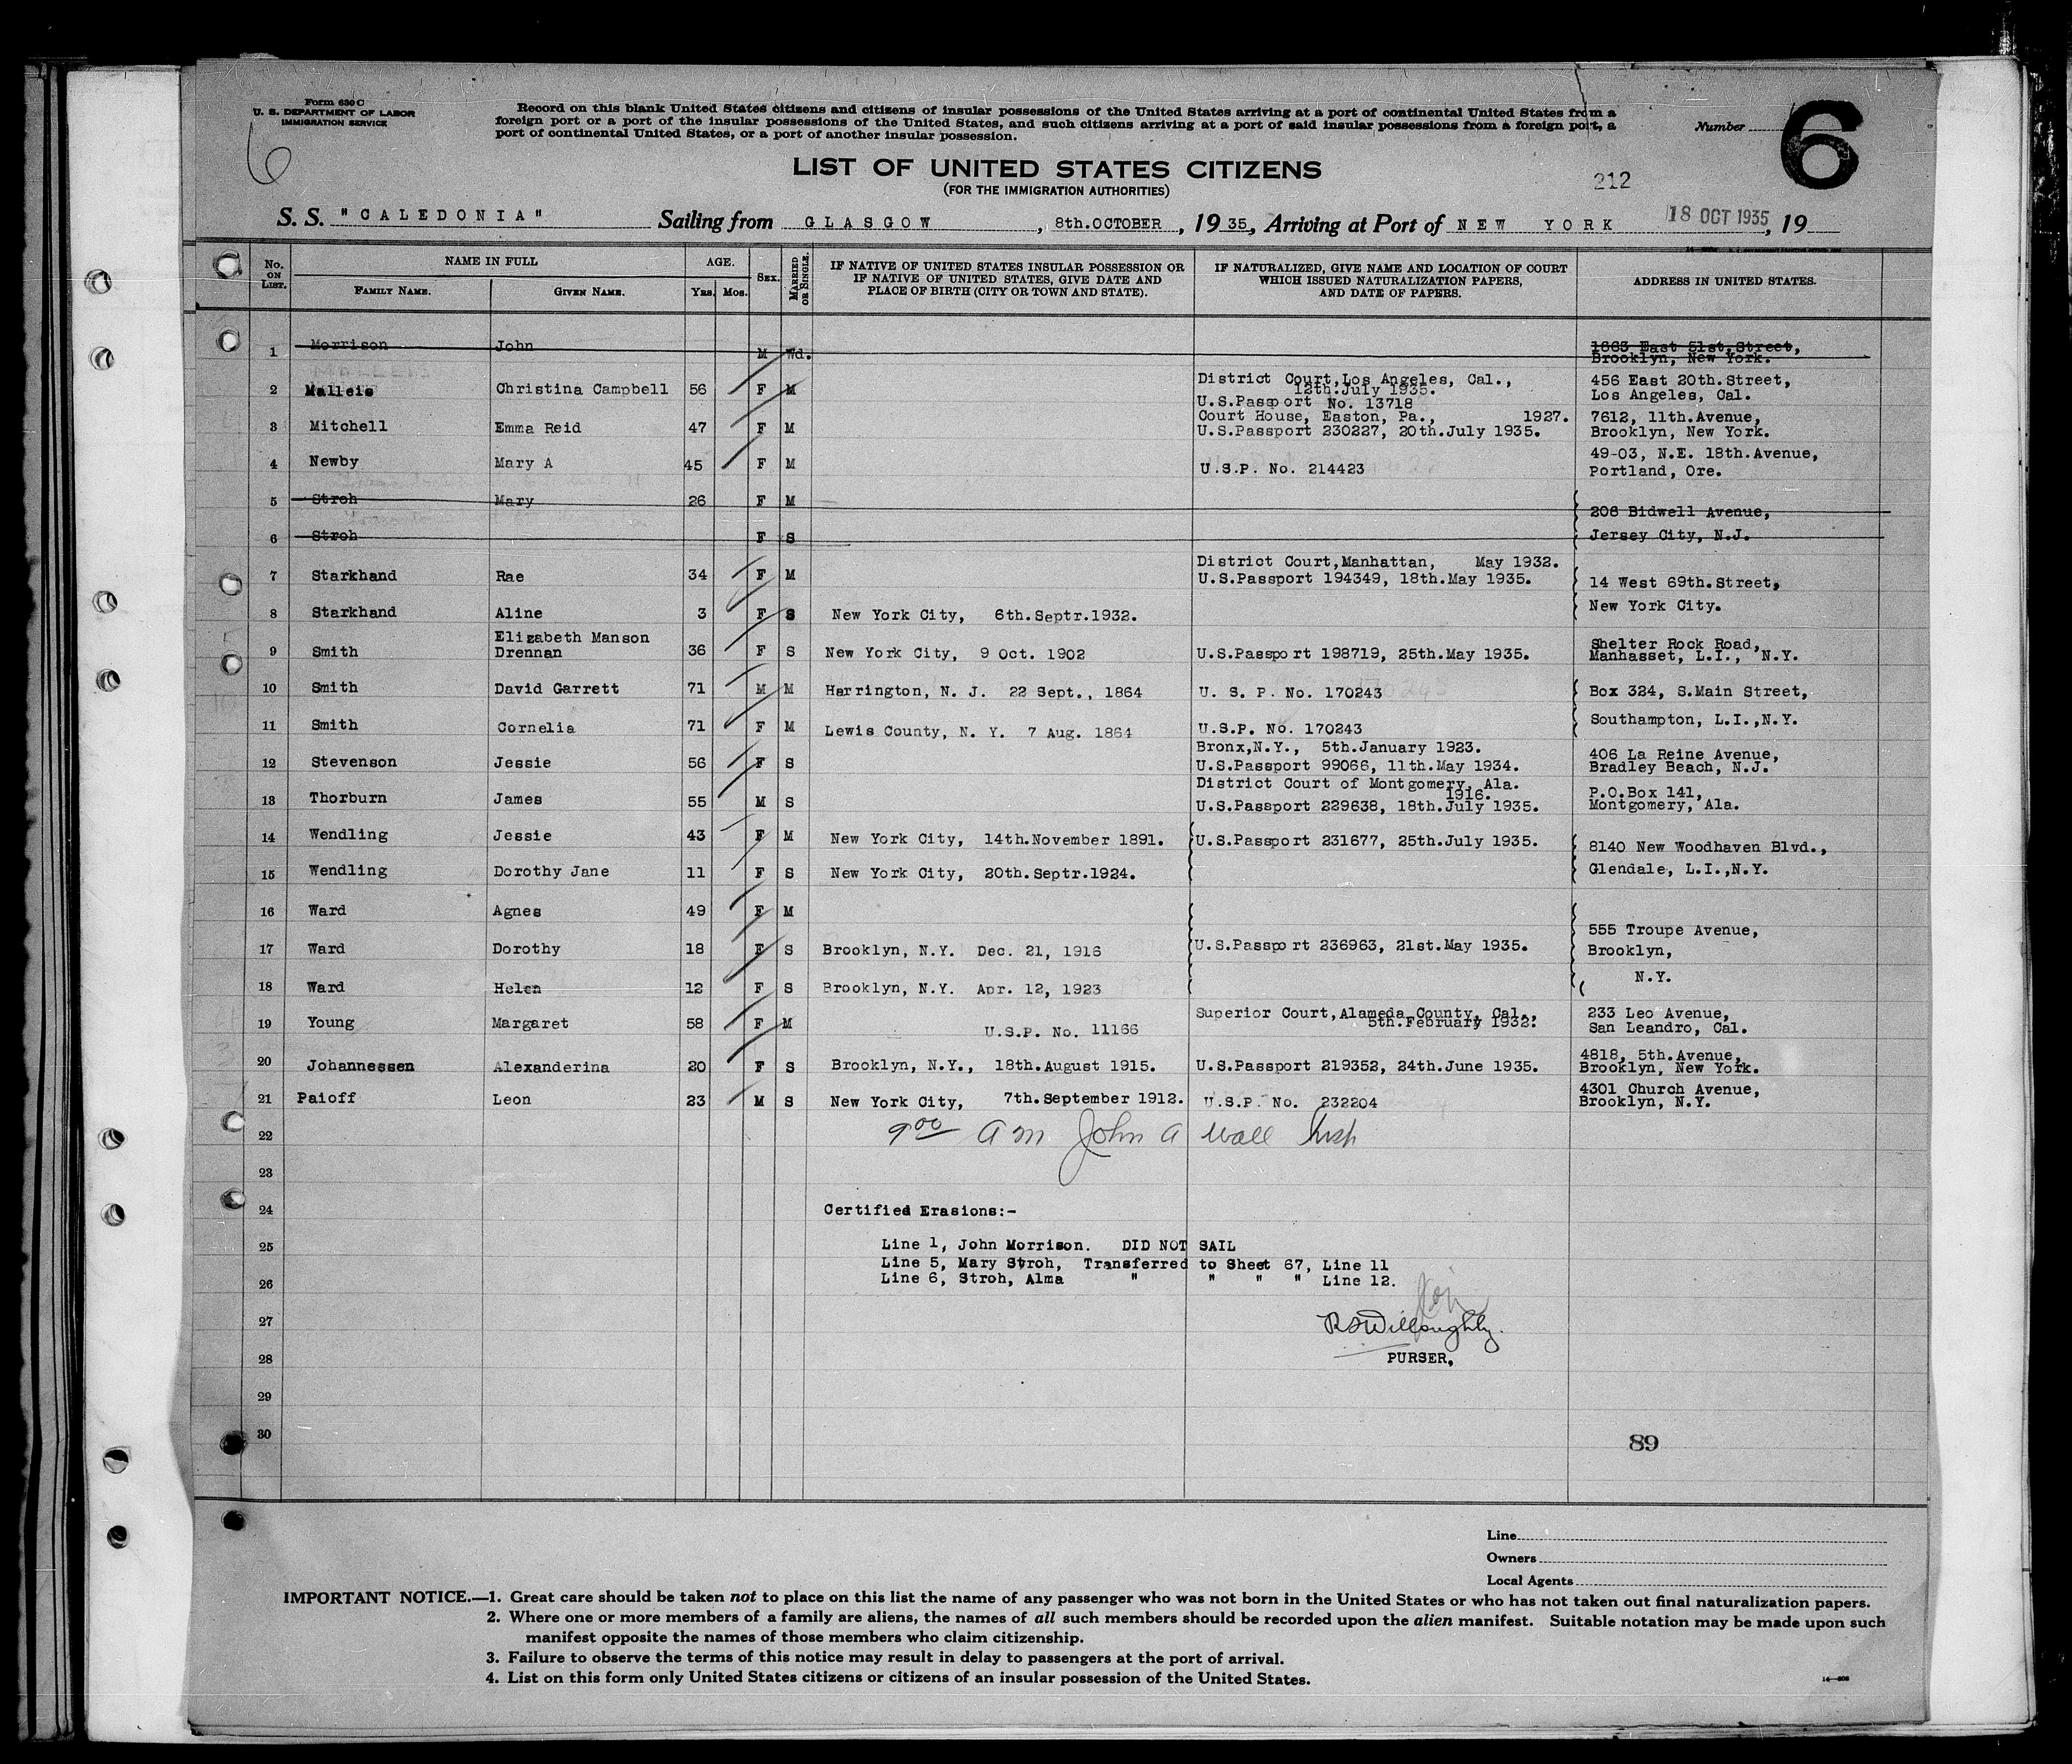 Form 630 C
U. S. DEPARTMENT OF LABOR
IMMIGRATION SERVICE
6
Record on this blank United States citizens and citizens of insular possessions of the United States arriving at a port of continental United States from a
foreign port or a port of the insular possessions of the United States, and such citizens arriving at a port of said insular possessions from a foreign port, a
port of continental United States, or a port of another insular possession.
Number 6
LIST OF UNITED STATES CITIZENS
(FOR THE IMMIGRATION AUTHORITIES)
212
S. S. "CALEDONIA" Sailing from GLASGOW, 8th.OCTOBER, 1935, Arriving at Port of NEW YORK 18 OCT 1935, 19
No. ON LIST. NAME IN FULL AGE. SEX. MARRIED OR SINGLE. IF NATIVE OF UNITED STATES INSULAR POSSESSION OR IF NATIVE OF UNITED STATES, GIVE DATE AND PLACE OF BIRTH (CITY OR TOWN AND STATE). IF NATURALIZED, GIVE NAME AND LOCATION OF COURT WHICH ISSUED NATURALIZATION PAPERS, AND DATE OF PAPERS. ADDRESS IN UNITED STATES.
FAMILY NAME. GIVEN NAME. Yrs. Mos.
1 Morrison John M Wd. 1863 East 51st.Street, Brooklyn, New York.
2 Malleis Christina Campbell 56 F M District Court,Los Angeles, Cal., 12th.July 1935. U.S.Passport No. 13718 456 East 20th.Street, Los Angeles, Cal.
3 Mitchell Emma Reid 47 F M Court House, Easton, Pa., 1927. U.S.Passport 230227, 20th.July 1935. 7612, 11th.Avenue, Brooklyn, New York.
4 Newby Mary A 45 F M U.S.P. No. 214423 49-03, N.E. 18th.Avenue, Portland, Ore.
5 Stroh Mary 26 F M 208 Bidwell Avenue,
6 Stroh F S Jersey City, N.J.
7 Starkhand Rae 34 F M District Court,Manhattan, May 1932. U.S.Passport 194349, 18th.May 1935. 14 West 69th.Street,
8 Starkhand Aline 3 F S New York City, 6th.Septr.1932. New York City.
9 Smith Elizabeth Manson Drennan 36 F S New York City, 9 Oct. 1902 U.S.Passport 198719, 25th.May 1935. Shelter Rock Road, Manhasset, L.I., N.Y.
10 Smith David Garrett 71 M M Harrington, N. J. 22 Sept., 1864 U. S. P. No. 170243 Box 324, S.Main Street,
11 Smith Cornelia 71 F M Lewis County, N. Y. 7 Aug. 1864 U.S.P. No. 170243 Southampton, L.I.,N.Y.
12 Stevenson Jessie 56 F S Bronx,N.Y., 5th.January 1923. U.S.Passport 99066, 11th.May 1934. 406 La Reine Avenue, Bradley Beach, N.J.
13 Thorburn James 55 M S District Court of Montgomery, Ala. 1916. U.S.Passport 229638, 18th.July 1935. P.O.Box 141, Montgomery, Ala.
14 Wendling Jessie 43 F M New York City, 14th.November 1891. U.S.Passport 231677, 25th.July 1935. 8140 New Woodhaven Blvd.,
15 Wendling Dorothy Jane 11 F S New York City, 20th.Septr.1924. Glendale, L.I.,N.Y.
16 Ward Agnes 49 F M
17 Ward Dorothy 18 F S Brooklyn, N.Y. Dec. 21, 1916 U.S.Passport 236963, 21st.May 1935. 555 Troupe Avenue, Brooklyn,
18 Ward Helen 12 F S Brooklyn, N.Y. Apr. 12, 1923 N.Y.
19 Young Margaret 58 F M U.S.P. No. 11166 Superior Court,Alameda County, Cal., 5th.February 1932. 233 Leo Avenue, San Leandro, Cal.
20 Johannessen Alexanderina 20 F S Brooklyn, N.Y., 18th.August 1915. U.S.Passport 219352, 24th.June 1935. 4818, 5th.Avenue, Brooklyn, New York.
21 Paioff Leon 23 M S New York City, 7th.September 1912. U.S.P. No. 232204 4301 Church Avenue, Brooklyn, N.Y.
22 9 00 AM John A Wall Insp
23
24 Certified Erasions:-
25 Line 1, John Morrison. DID NOT SAIL
Line 5, Mary Stroh, Transferred to Sheet 67, Line 11
26 Line 6, Stroh, Alma " " " " Line 12.
27 RSWilloughby.
28 PURSER.
29
30
89
Line
Owners
Local Agents
IMPORTANT NOTICE.—1. Great care should be taken not to place on this list the name of any passenger who was not born in the United States or who has not taken out final naturalization papers.
2. Where one or more members of a family are aliens, the names of all such members should be recorded upon the alien manifest. Suitable notation may be made upon such
manifest opposite the names of those members who claim citizenship.
3. Failure to observe the terms of this notice may result in delay to passengers at the port of arrival.
4. List on this form only United States citizens or citizens of an insular possession of the United States.